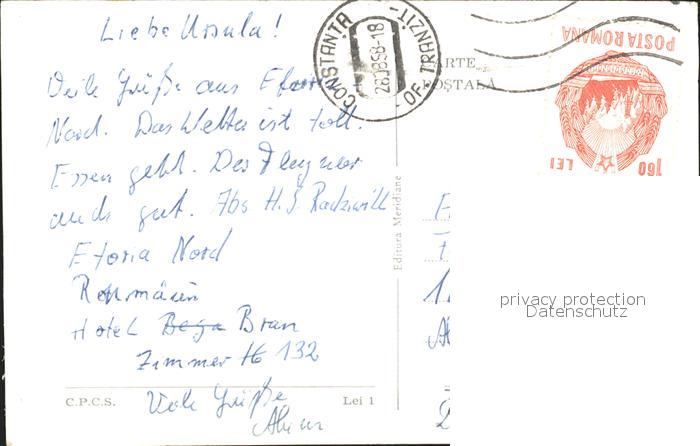 Liebe Ursula!
Viele Grüße aus Eforie
Nord. Das Wetter ist toll.
Essen geht. Der Flug war
auch gut. H. J. Radziwill
Eforia Nord
Rumänien
Hotel Bega Bran
Zimmer 132
Viele Grüße
C.P.C.S.
Lei 1
Editura Meridiane
CARTE
POȘTALĂ
CONSTANȚA
OF. TRANZIT
28.08.68-18
POSTA ROMANA
1,60 LEI
privacy protection
Datenschutz